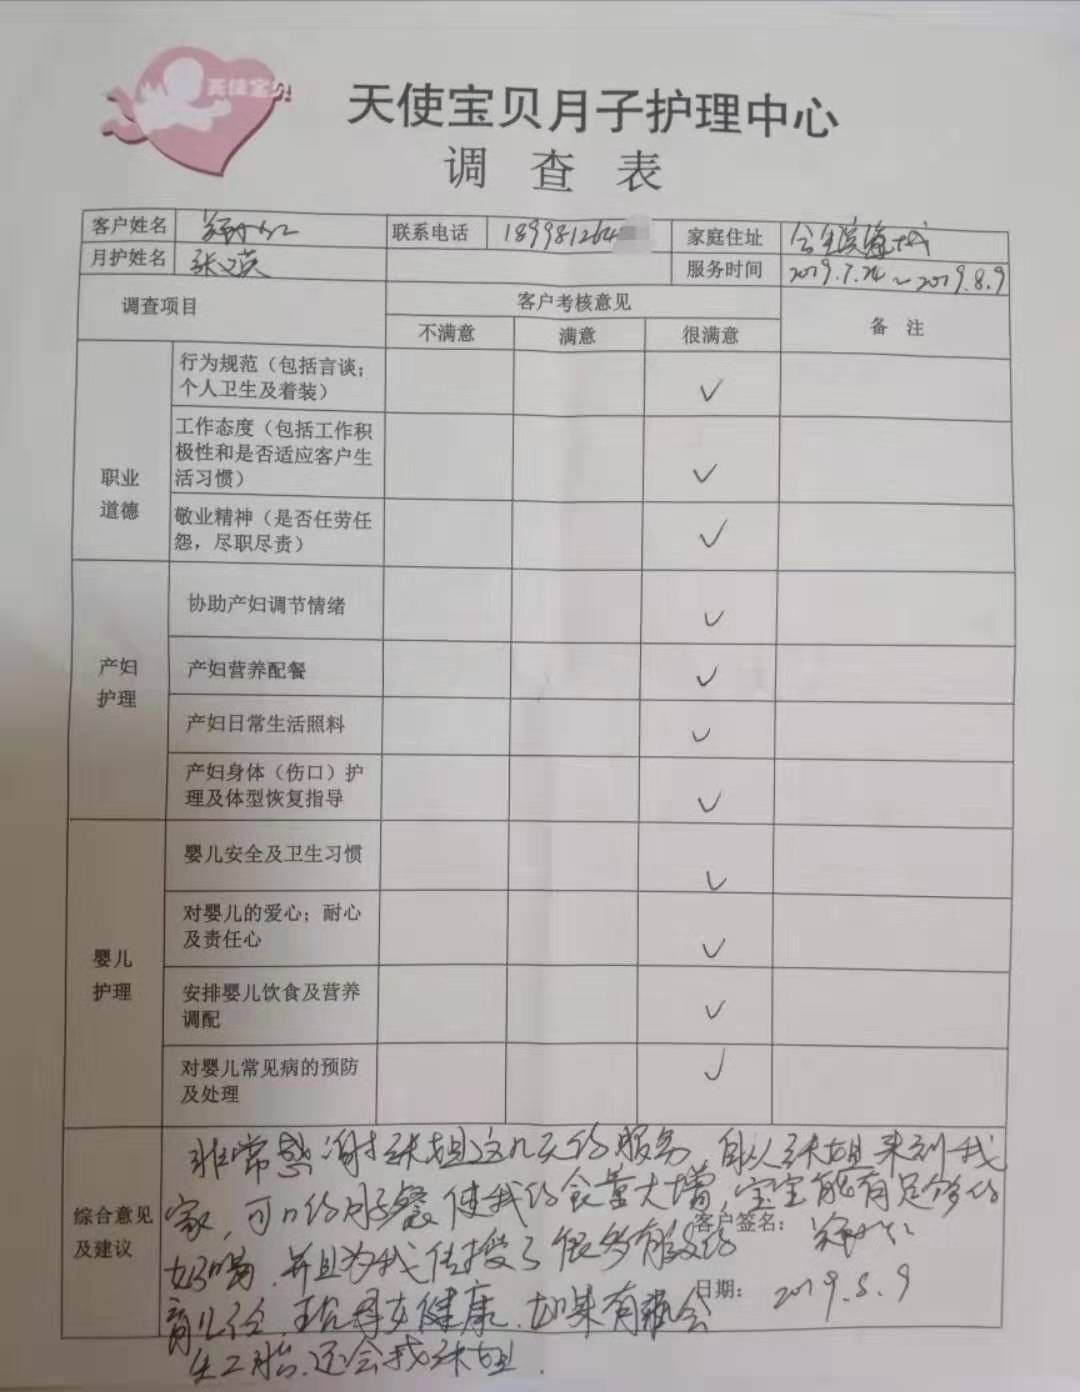 天使宝贝
天使宝贝月子护理中心
调 查 表
客户姓名 联系电话 18998126 家庭住址
月护姓名 张 英 服务时间 2019.7.24~2019.8.9
调查项目 客户考核意见 备 注
不满意 满意 很满意
职业道德
行为规范（包括言谈；
个人卫生及着装） ✓
工作态度（包括工作积
极性和是否适应客户生
活习惯） ✓
敬业精神（是否任劳任
怨，尽职尽责） ✓
产妇护理
协助产妇调节情绪 ✓
产妇营养配餐 ✓
产妇日常生活照料 ✓
产妇身体（伤口）护
理及体型恢复指导 ✓
婴儿护理
婴儿安全及卫生习惯 ✓
对婴儿的爱心；耐心
及责任心 ✓
安排婴儿饮食及营养
调配 ✓
对婴儿常见病的预防
及处理 ✓
综合意见
及建议
非常感谢张姐这几天的服务，自从张姐来到我
家，可口的月子餐使我的食量大增，宝宝能有足够的
奶喝，并且为我传授了很多有效的
育儿经，现母女健康，如果有机会
生二胎，还会找张姐．
客户签名：
日期： 2019.8.9